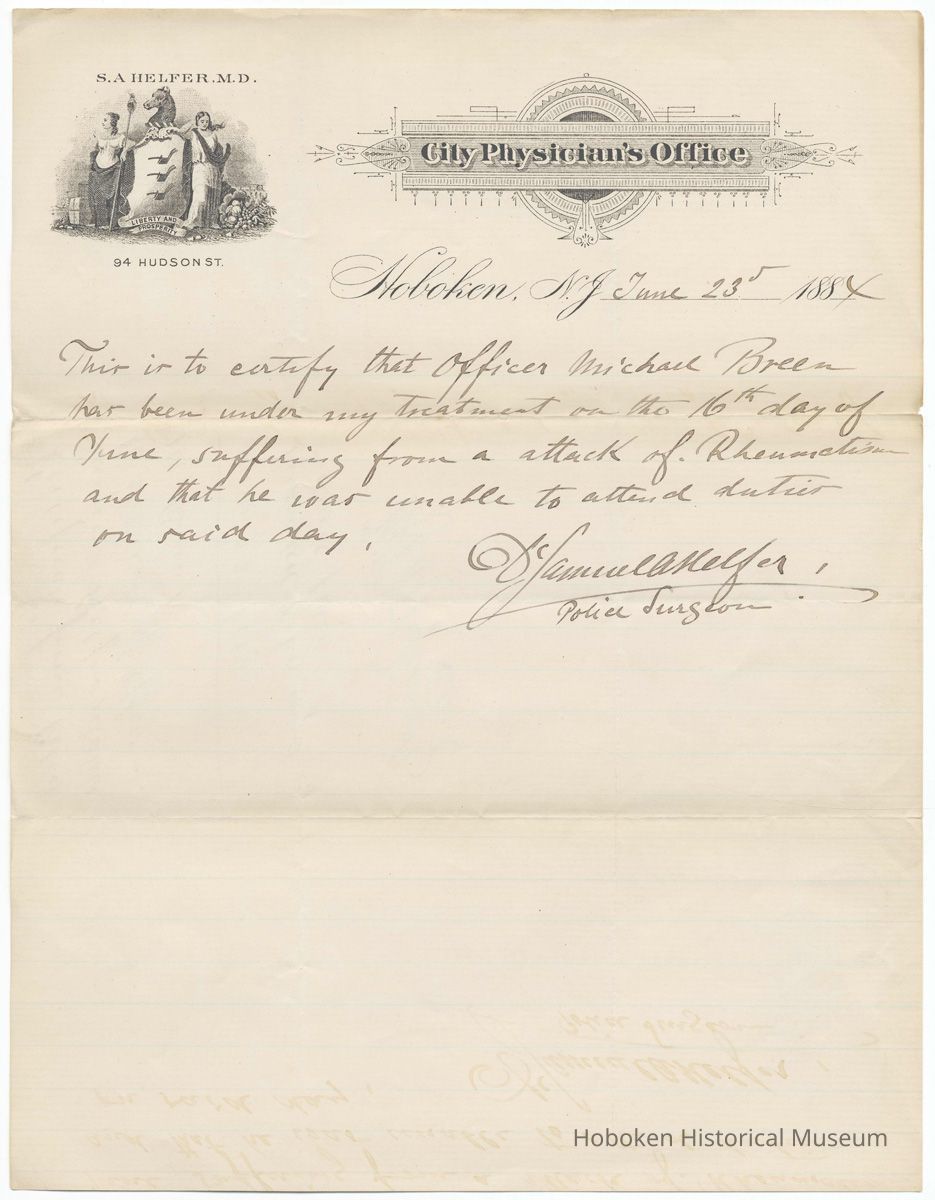 S. A HELFER. M.D.
LIBERTY AND
PROSPERITY
94 HUDSON ST.
City Physician's Office
Hoboken, N.J June 23d 1884
This is to certify that Officer Michael Breen
has been under my treatment on the 16th day of
June, suffering from a attack of. Rheumatism
and that he was unable to attend duties
on said day,
Dr Samuel A Helfer,
Police Surgeon
Hoboken Historical Museum